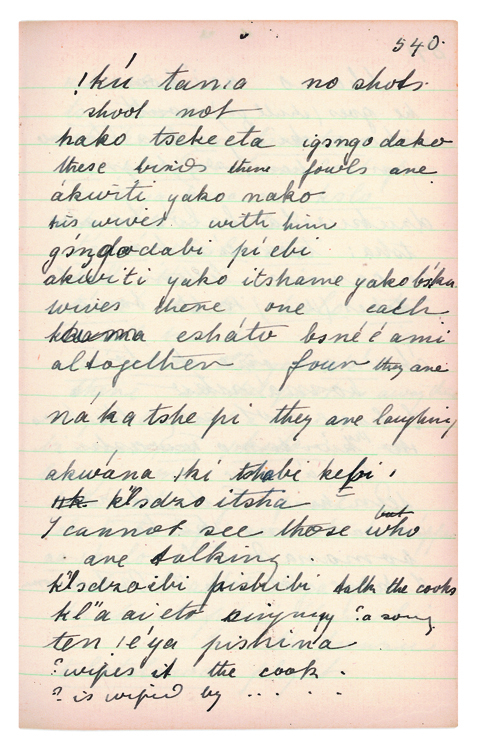 540.
!kú tama no shots.
shoot not
hako tseke eta igɜngodako
these birds there fowls are
ákwiti yako nako
his wives with him
gɜngodabi pi ebi
akwiti yako itshame yako
wives there one each
esháto bɜné é ami
altogether four they are
náka tshe pi they are laughing
akwána !ki tshabi kebi,
itsha
I cannot see those who but
are talking.
pishibi talk the cooks
singing ? a song
ten !é'ya pishina
? wipes it the cook.
? is wiped by .....